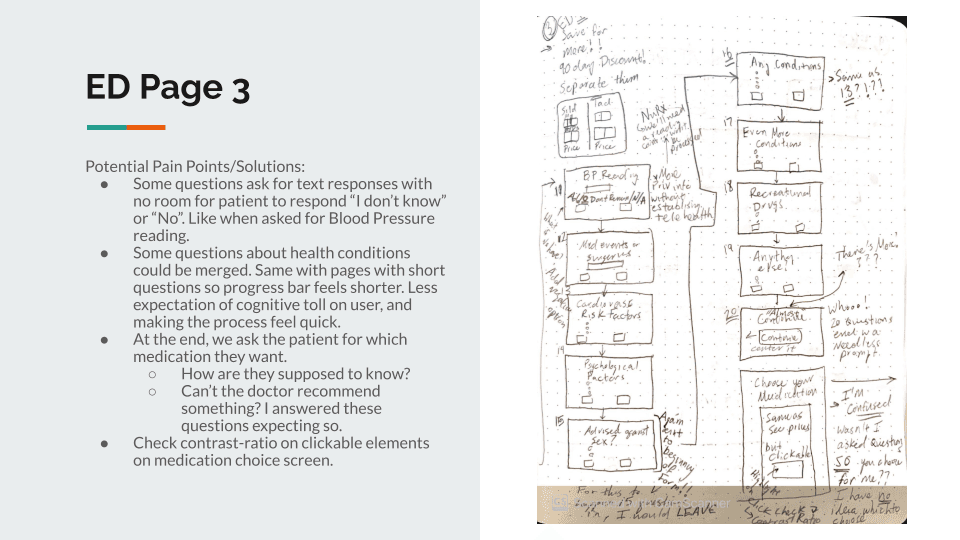 ED Page 3
Potential Pain Points/Solutions:
● Some questions ask for text responses with
no room for patient to respond “I don’t know”
or “No”. Like when asked for Blood Pressure
reading.
● Some questions about health conditions
could be merged. Same with pages with short
questions so progress bar feels shorter. Less
expectation of cognitive toll on user, and
making the process feel quick.
● At the end, we ask the patient for which
medication they want.
○ How are they supposed to know?
○ Can’t the doctor recommend
something? I answered these
questions expecting so.
● Check contrast-ratio on clickable elements
on medication choice screen.
③ ED
Save for
more!!
90 day Discount!
Separate them
Sild
Tad
Price
Price
NuRx
B.P. Reading
Don't Remem/N/A
* More
priv info
without
establishing
telehealth
12
Med events or
surgeries
Cardiovasc
Risk factors
14
Psychological
Factors
15
Advised against
sex?
Again
sent
to
beginning
of
Form!!
For this to
I should LEAVE
16
Any Conditions
Same as
13?!??
17
Even More
Conditions
18
Recreational
Drugs
19
Anything
else?
There's More?
???
20
Continue
Continue
center it
Whooo!
20 Questions
end w a
needless
prompt.
Choose your
Medication
Same as
see prices
but
clickable
I'm
Confused
Wasn't I
asked Questions
SO you choose
for me??
I have no
idea which to
choose
Check
Contrast Ratio